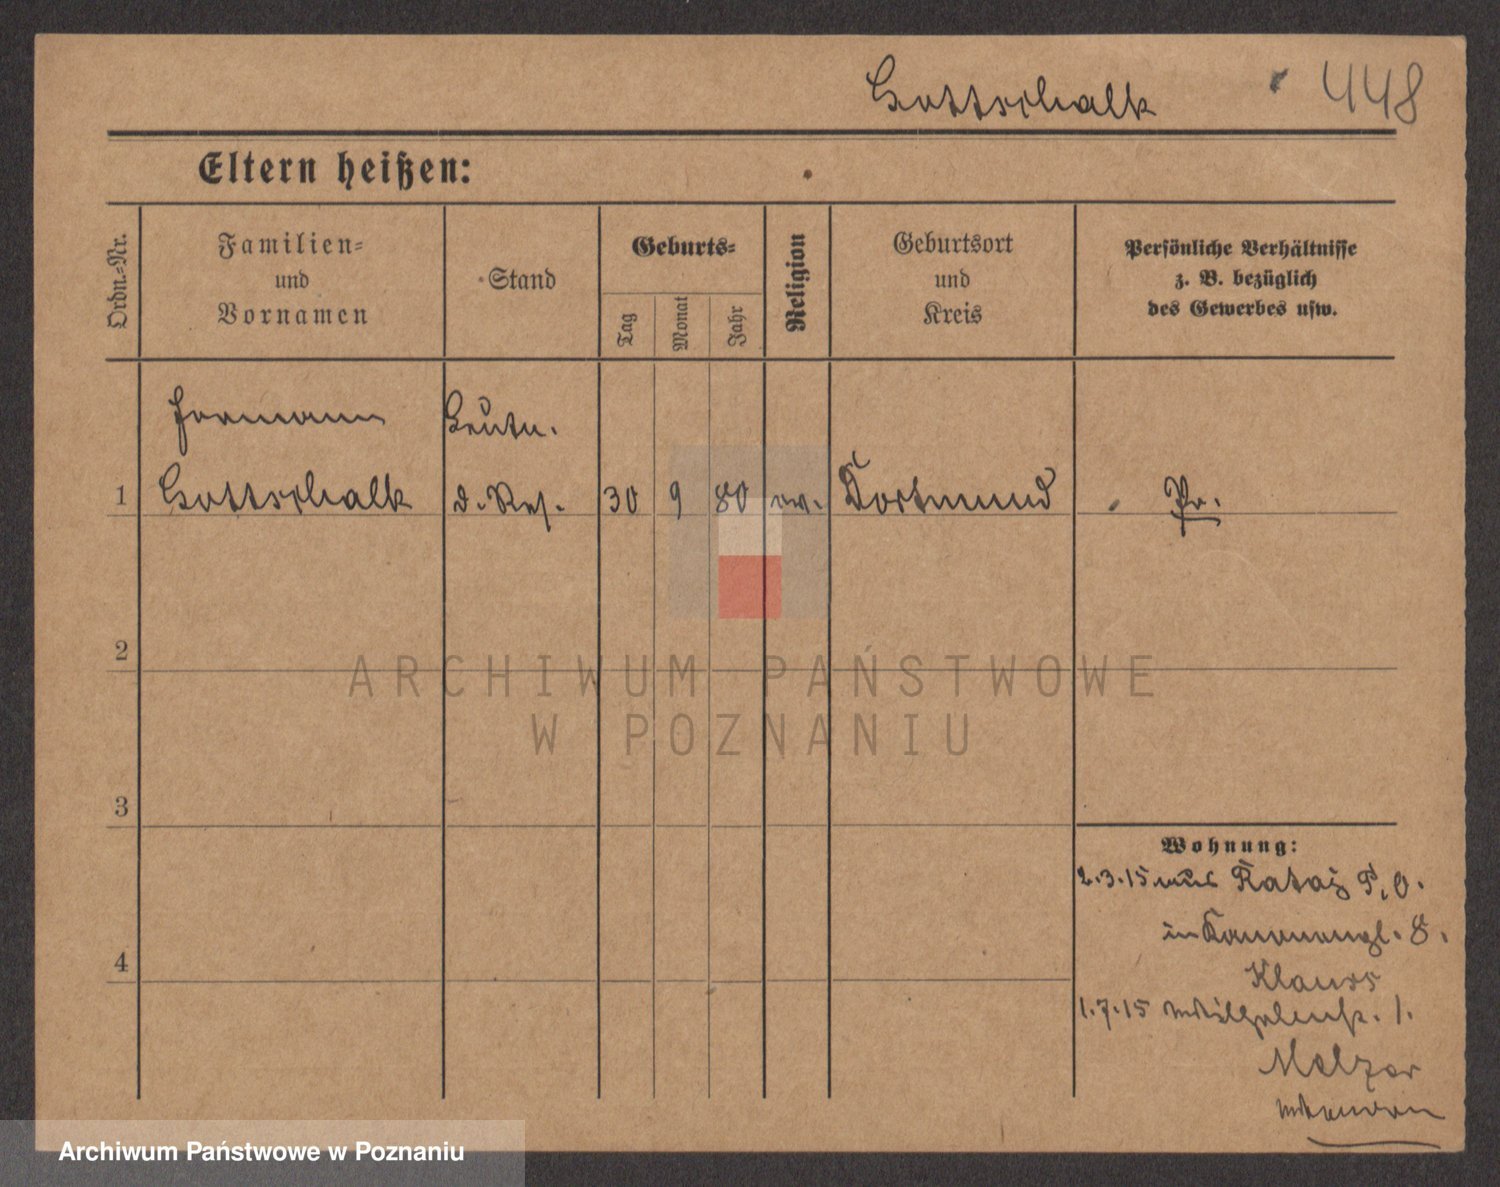 Gottschalk 448
Eltern heißen:
Ordn.-Nr.
Familien-
und
Vornamen
Stand
Geburts-
Tag
Monat
Jahr
Religion
Geburtsort
und
Kreis
Persönliche Verhältnisse
z. B. bezüglich
des Gewerbes usw.
Hermann Leutn.
1 Gottschalk d. Res. 30 9 80 ev. Dortmund Pr.
2
ARCHIWUM PAŃSTWOWE
W POZNANIU
3
Wohnung:
2.3.15 aus Rataj P. O.
in Kanonengl. 8.
4
Klauss
1.7.15 Wilhelmstr. 1.
Melzer
Archiwum Państwowe w Poznaniu